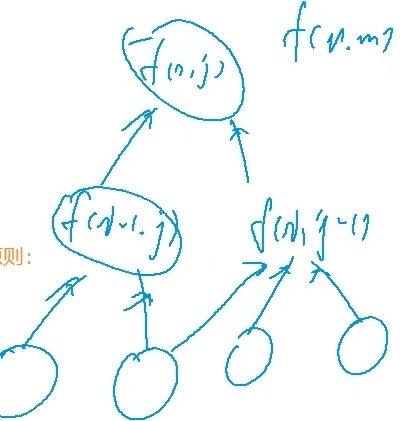 f(n.m)
f(n,j)
f(n-1.j)
f(n,j-1)
则：